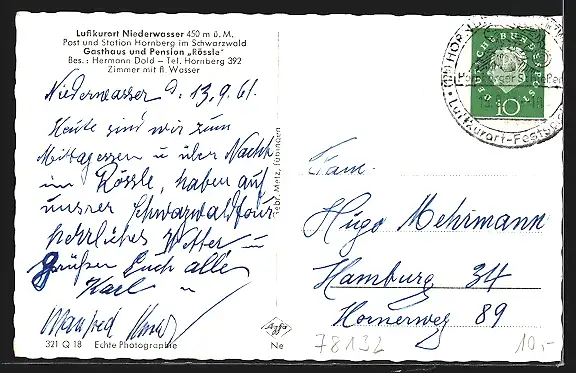 Luftkurort Niederwasser 450 m ü. M.
Post und Station Hornberg im Schwarzwald
Gasthaus und Pension „Rössle“
Bes.: Hermann Dold – Tel. Hornberg 392
Zimmer mit fl. Wasser
Niederwasser d. 13.9.61.
Heute sind wir zum
Mittagessen u über Nacht
im Rössle, haben auf
unsrer Schwarzwaldtour
herrliches Wetter –
grüßen Euch alle
Karl –
Manfred
321 Q 18 Echte Photographie
Gebr. Metz, Tübingen
Agfa
Ne
DEUTSCHE BUNDESPOST
10
Luftkurort-Festspiel
Fam.
Hugo Mehrmann
Hamburg 34
Hornerweg 89
78132
10,-